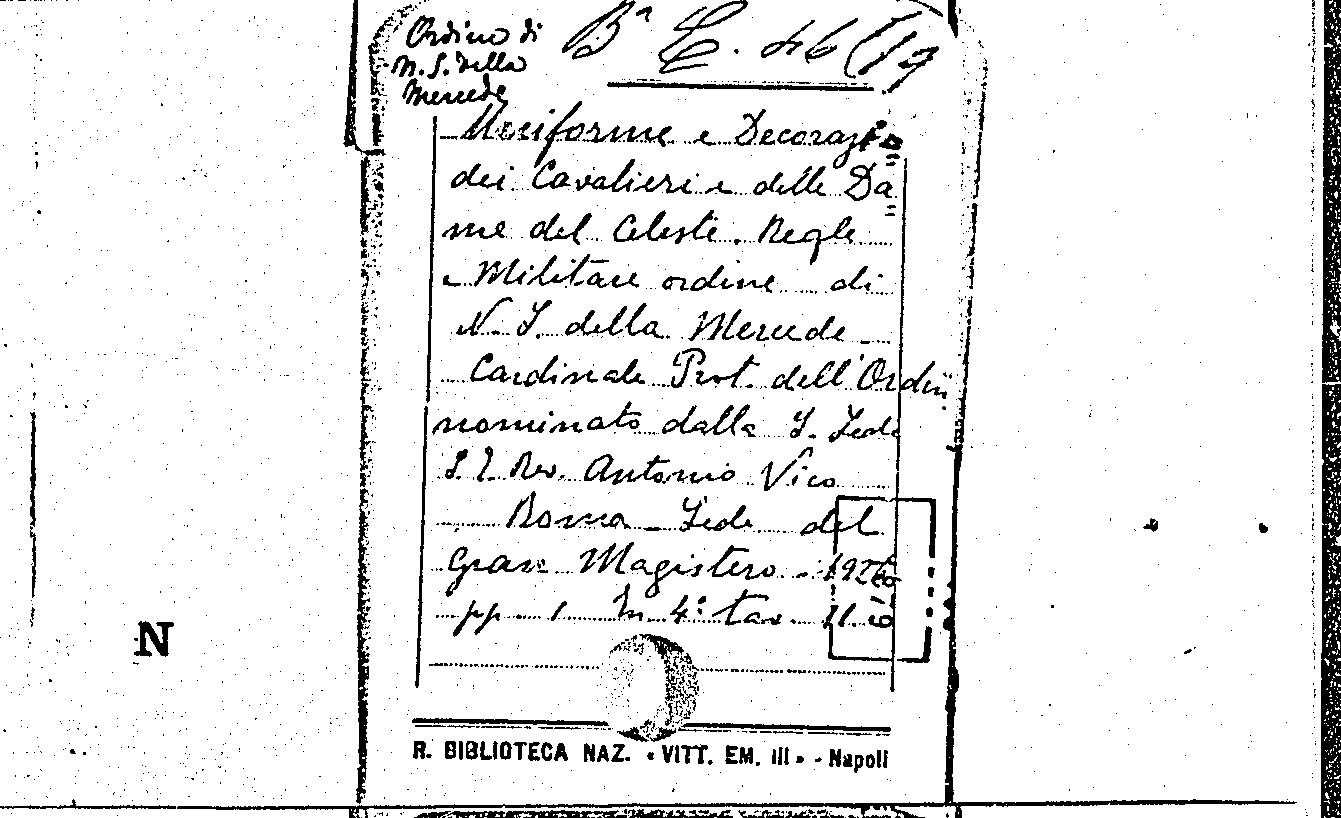 Ordine di
N. S. della
Mercede
Bª C. 46 (19
Uniforme e Decorazio
dei Cavalieri e delle Da
me del Celeste. Regle
e Militare ordine di
N. S. della Mercede
Cardinale Prot. dell'Ordin
nominato dalla S. Sede
S. E. Rev. Antonio Vico
Roma - Sede del
Gran Magistero - 192
pp. 1 In 4.° tav. 11.
N
R. BIBLIOTECA NAZ. « VITT. EM. III » - Napoli